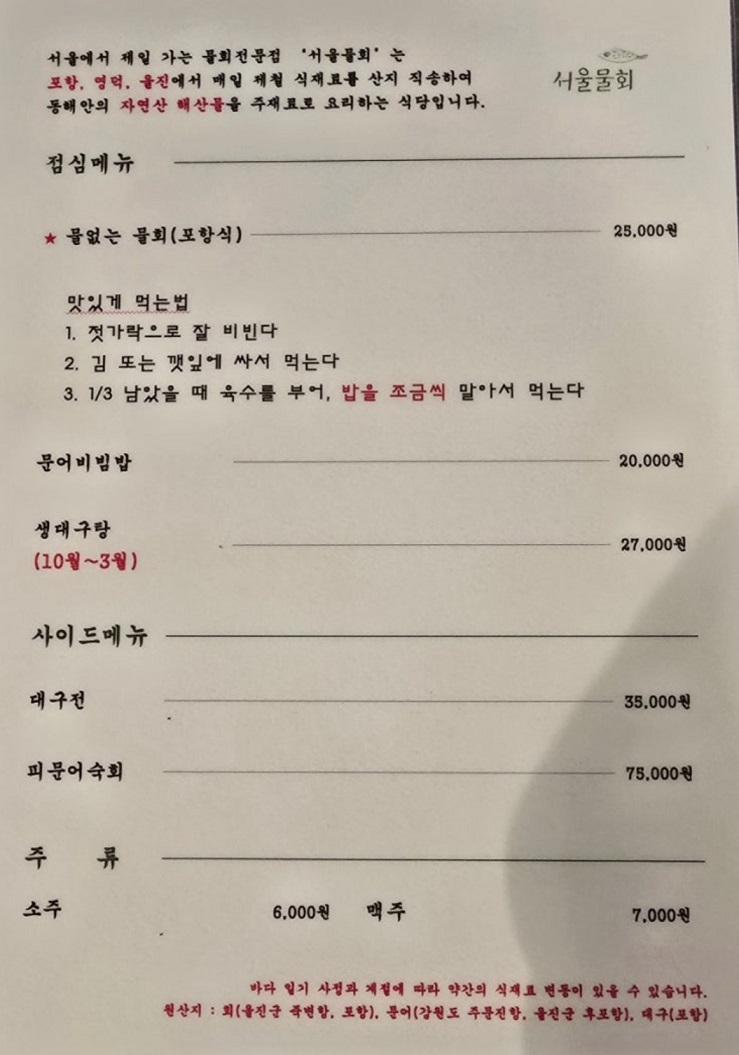 서울에서 제일 가는 물회전문점 '서울물회' 는
포항, 영덕, 울진에서 매일 제철 식재료를 산지 직송하여
동해안의 자연산 해산물을 주재료로 요리하는 식당입니다.
서울물회
점심메뉴
★ 물없는 물회(포항식) 25,000원
맛있게 먹는법
1. 젓가락으로 잘 비빈다
2. 김 또는 깻잎에 싸서 먹는다
3. 1/3 남았을 때 육수를 부어, 밥을 조금씩 말아서 먹는다
문어비빔밥 20,000원
생대구탕
(10월~3월) 27,000원
사이드메뉴
대구전 35,000원
피문어숙회 75,000원
주 류
소주 6,000원 맥주 7,000원
바다 일기 사정과 계절에 따라 약간의 식재료 변동이 있을 수 있습니다.
원산지 : 회(울진군 죽변항, 포항), 문어(강원도 주문진항, 울진군 후포항), 대구(포항)